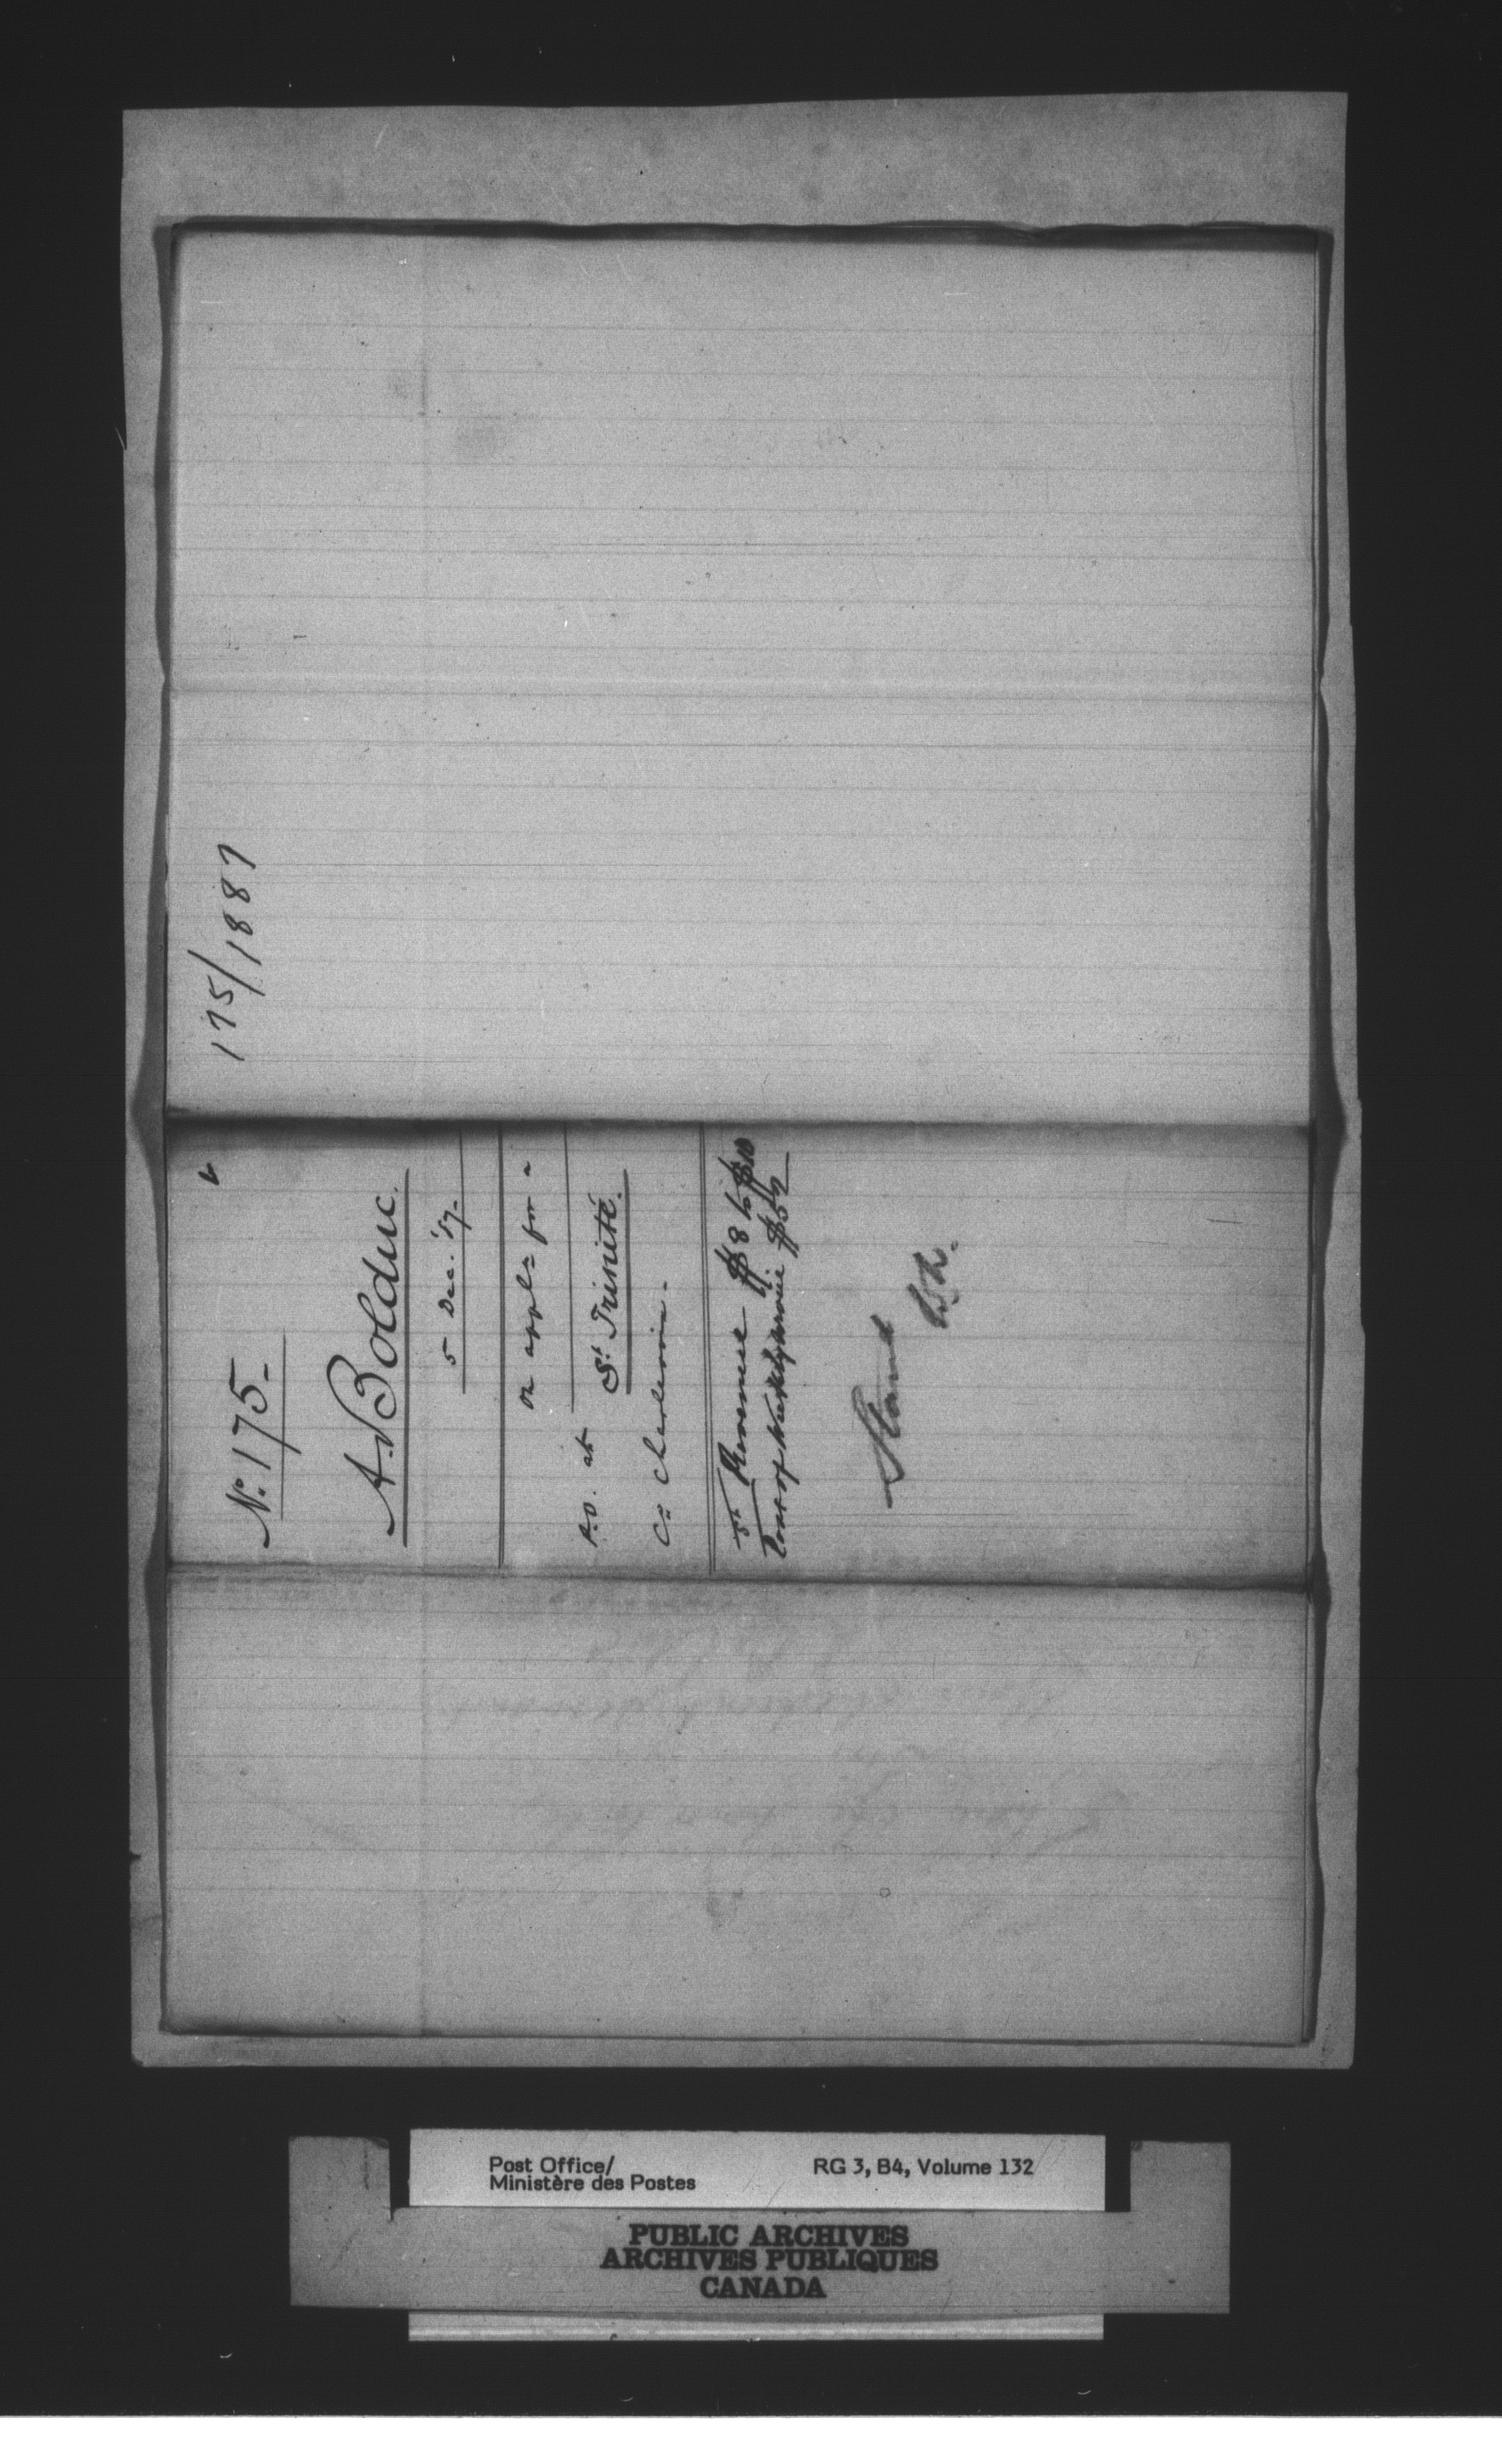 175/1887
No. 175-
A. Bolduc.
5 Dec. '87-
on appl= for a
P.O. at St. Trinité.
Co Charlevoix-
Revenue $8 to $10
Cost of $52
Stand
Post Office/
Ministère des Postes
RG 3, B4, Volume 132
PUBLIC ARCHIVES
ARCHIVES PUBLIQUES
CANADA